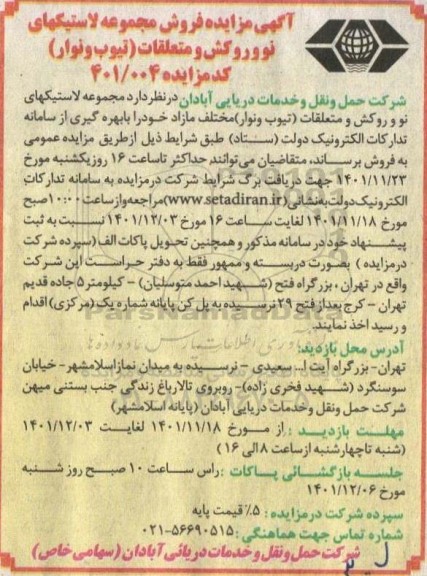 آگهی مزایده فروش مجموعه لاستیکهای
نو و روکش و متعلقات (تیوب و نوار)
کد مزایده ۴۰۱/۰۰۴
شرکت حمل ونقل وخدمات دریایی آبادان درنظردارد مجموعه لاستیکهای
نو و روکش و متعلقات (تیوب ونوار)مختلف مازاد خودرا بابهره گیری از سامانه
تدارکات الکترونیک دولت (ستاد) طبق شرایط ذیل ازطریق مزایده عمومی
به فروش برساند، متقاضیان می‌توانند حداکثر تاساعت ۱۶ روزیکشنبه مورخ
۱۴۰۱/۱۱/۲۳ جهت دریافت برگ شرایط شرکت درمزایده به سامانه تدارکات
الکترونیک دولت به‌نشانی (www.setadiran.ir)مراجعه‌وازساعت ۱۰:۰۰صبح
مورخ ۱۴۰۱/۱۱/۱۸ لغایت ساعت ۱۶ مورخ ۱۴۰۱/۱۲/۰۳ نسبت به ثبت
پیشنهاد خود در سامانه مذکور و همچنین تحویل پاکات الف (سپرده شرکت
درمزایده ) بصورت دربسته و ممهور فقط به دفتر حراست این شرکت
واقع در تهران ، بزرگراه فتح (شهید احمد متوسلیان) - کیلومتر ۵ جاده قدیم
تهران - کرج بعداز فتح ۲۹ نرسیده به پل کن پایانه شماره یک (مرکزی) اقدام
و رسید اخذ نمایند.
آدرس محل بازدید:
تهران- بزرگراه آیت ا... سعیدی - نرسیده به میدان نمازاسلامشهر- خیابان
سوسنگرد (شهید فخری زاده)- روبروی تالارباغ زندگی جنب بستنی میهن
شرکت حمل ونقل وخدمات دریایی آبادان (پایانه اسلامشهر)
مهلت بازدید : از مورخ ۱۴۰۱/۱۱/۱۸ لغایت ۱۴۰۱/۱۲/۰۳
(شنبه تاچهارشنبه ازساعت ۸ الی ۱۶ )
جلسه بازگشائی پاکات :راس ساعت ۱۰ صبح روز شنبه
مورخ ۱۴۰۱/۱۲/۰۶
سپرده شرکت درمزایده : ۵٪ قیمت پایه
شماره تماس جهت هماهنگی : ۵۶۶۹۰۵۱۵-۰۲۱
شرکت حمل ونقل و خدمات دریائی آبادان (سهامی خاص)